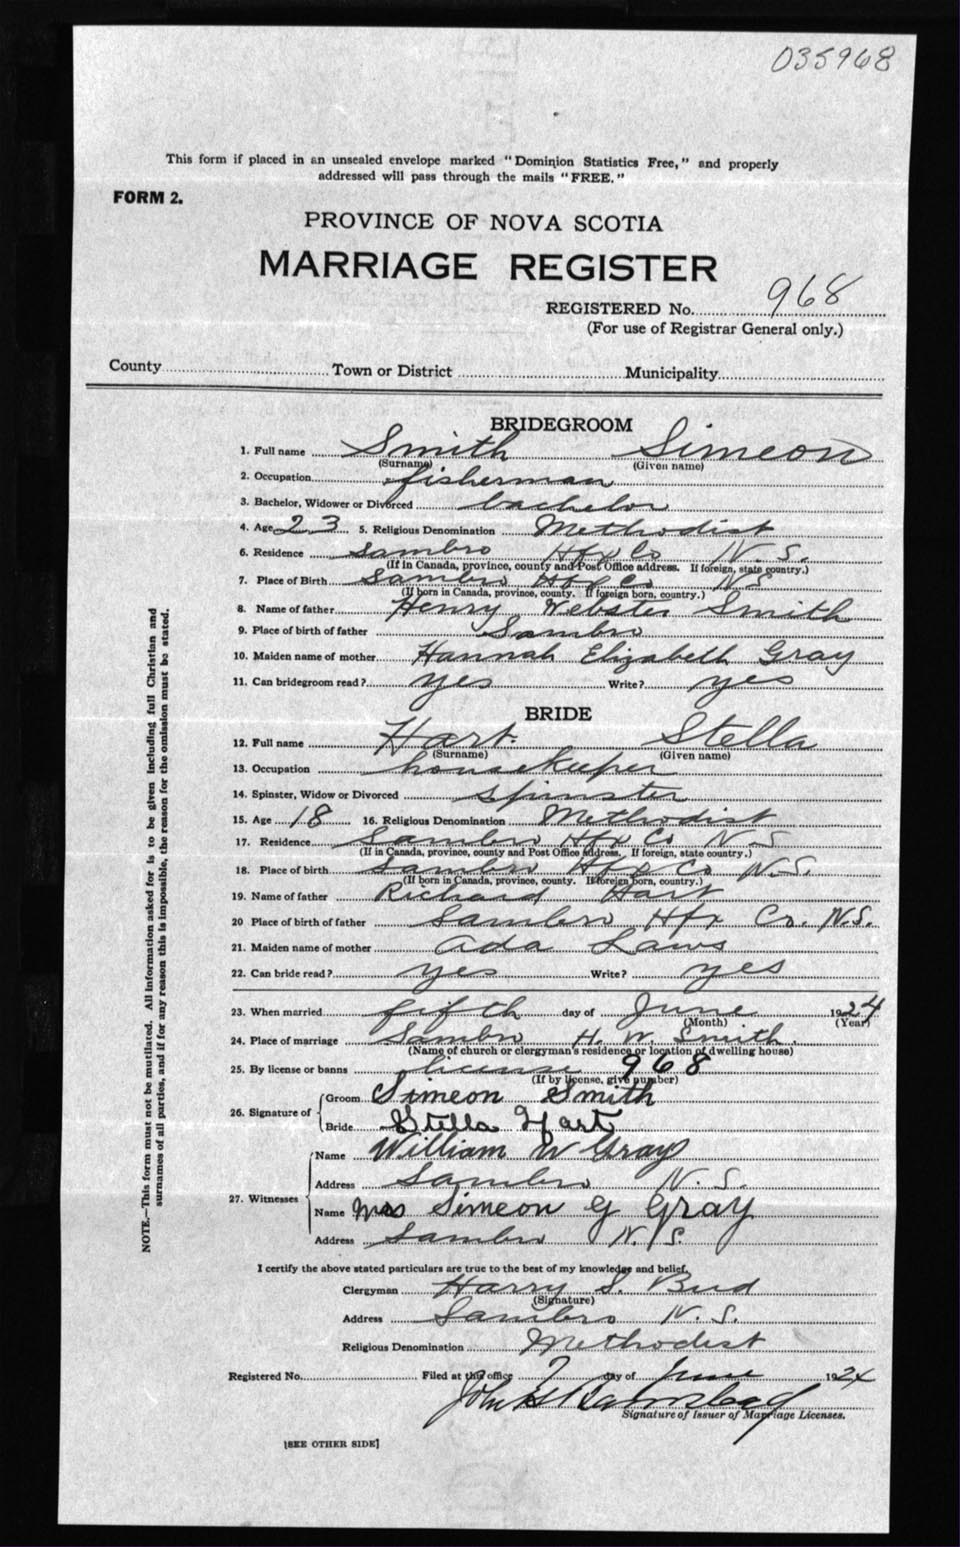 035968
This form if placed in an unsealed envelope marked "Dominion Statistics Free," and properly
addressed will pass through the mails "FREE."
FORM 2.
PROVINCE OF NOVA SCOTIA
MARRIAGE REGISTER
REGISTERED No. 968
(For use of Registrar General only.)
County Town or District Municipality
BRIDEGROOM
1. Full name Smith Simeon
(Surname) (Given name)
2. Occupation fisherman
3. Bachelor, Widower or Divorced bachelor
4. Age 23 5. Religious Denomination Methodist
6. Residence Sambro Hfx Co N.S.
(If in Canada, province, county and Post Office address. If foreign, state country.)
7. Place of Birth Sambro Hfx Co NS
(If born in Canada, province, county. If foreign born, country.)
8. Name of father Henry Webster Smith
9. Place of birth of father Sambro
10. Maiden name of mother Hannah Elizabeth Gray
11. Can bridegroom read? yes Write? yes
BRIDE
12. Full name Hart. Stella
(Surname) (Given name)
13. Occupation housekeeper
14. Spinster, Widow or Divorced spinster
15. Age 18 16. Religious Denomination Methodist
17. Residence Sambro Hfx Co N S
(If in Canada, province, county and Post Office address. If foreign, state country.)
18. Place of birth Sambro Hfx Co N.S.
(If born in Canada, province, county. If foreign born, country.)
19. Name of father Richard Hart
20 Place of birth of father Sambro Hfx Co. N.S.
21. Maiden name of mother Ada Laws
22. Can bride read? yes Write? yes
23. When married fifth day of June 1924
(Month) (Year)
24. Place of marriage Sambro H. W. Smith.
(Name of church or clergyman's residence or location of dwelling house)
25. By license or banns license 968
(If by license, give number)
26. Signature of Groom Simeon Smith
Bride Stella Hart
27. Witnesses Name William W Gray
Address Sambro N.S.
Name Mrs Simeon G Gray
Address Sambro N.S.
I certify the above stated particulars are true to the best of my knowledge and belief.
Clergyman Harry S. Bud
(Signature)
Address Sambro N.S.
Religious Denomination Methodist
Registered No. Filed at this office 7 day of June 1924
John
Signature of Issuer of Marriage Licenses.
[SEE OTHER SIDE]
NOTE.—This form must not be mutilated. All information asked for is to be given including full Christian and
surnames of all parties, and if for any reason this is impossible, the reason for the omission must be stated.